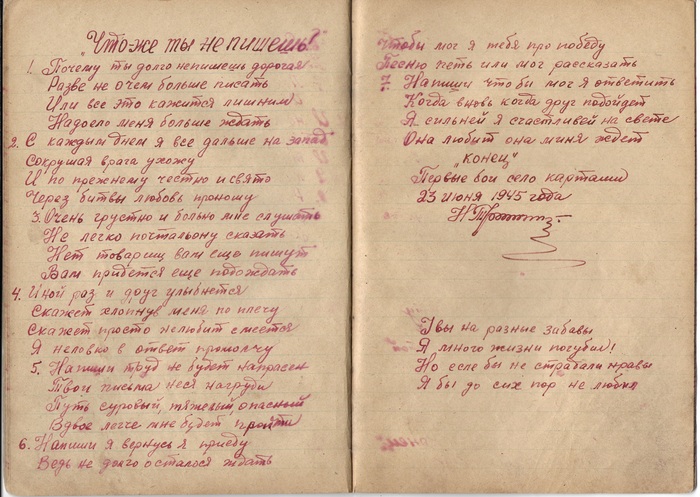 "Что же ты не пишешь!
1. Почему ты долго не пишешь дорогая
Разве не о чем больше писать
Или все это кажится лишним
Надоело меня больше ждать
2. С каждым днем я все дальше на запад
Сокрушая врага ухожу
И по прежнему честно и свято
Через битвы любовь проношу
3. Очень грустно и больно мне слушать
Не легко почтальону сказать
Нет товарищ вам еще пишут
Вам придется еще подождать
4. Иной раз и друг улыбнется
Скажет хлопнув меня по плечу
Скажет просто не любит смеется
Я неловко в ответ промолчу
5. Напиши труд не будет напрасен
Твои письма неся на груди
Путь суровый, тяжелый, опасный
Вдвое легче мне будет пройти
6. Напиши я вернусь я приеду
Ведь не долго осталося ждать
Чтобы мог я тебя про победу
Песню петь или мог рассказать
7. Напиши что бы мог я ответить
Когда вновь когда друг подойдет
Я сильней я счастливей на свете
Она любит она миня ждет
"конец"
Первые бои село карташи
23 июня 1945 года
Увы на разные забавы
Я много жизни погубил!
Но есле бы не страдали нравы
Я бы до сих пор не любил